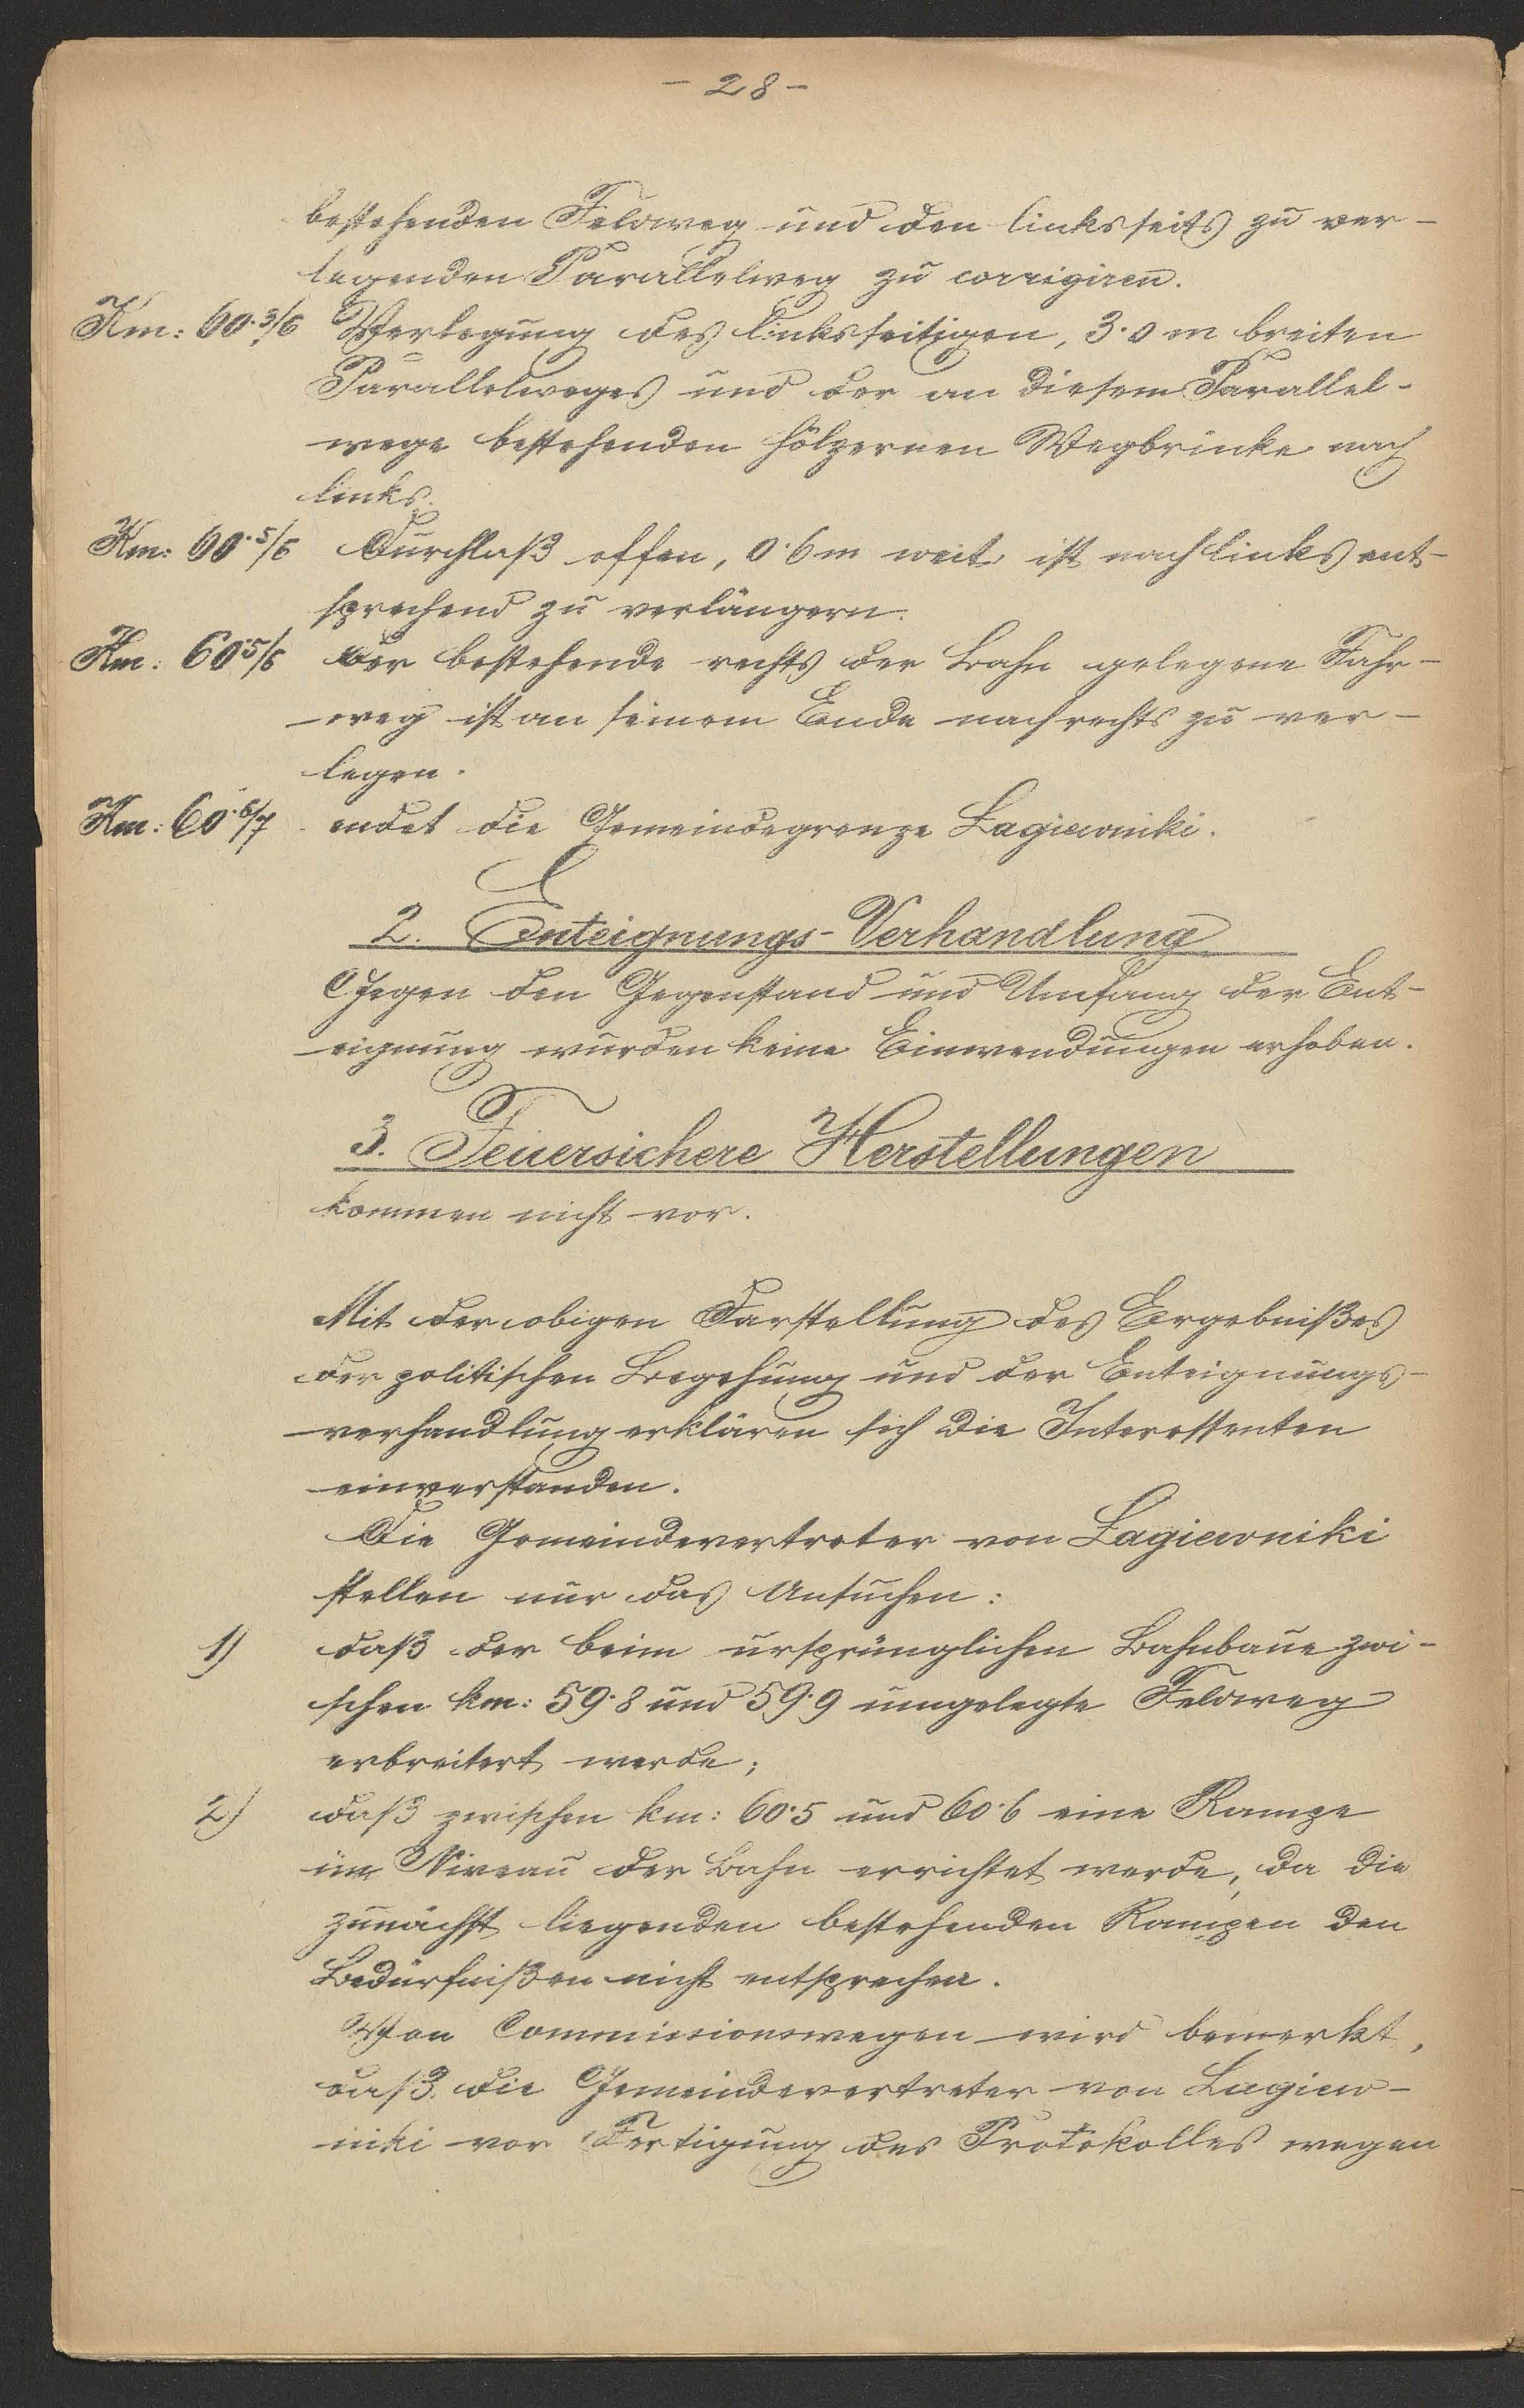 - 28 -
bestehenden Feldweg und den linksseits zu ver-
legenden Parallelweg zu corrigiren.
Km: 60·3/6 Verlegung des linksseitigen, 3·0 m breiten
Parallelweges und der an diesem Parallel-
wege bestehenden hölzernen Wegbrücke nach
links.
Km: 60·5/6 Durchlaß offen, 0·6 m weit ist nach links ent-
sprechend zu verlängern.
Km: 60·5/6 Der bestehende rechts der Bahn gelegene Fahr-
weg ist an seinem Ende nach rechts zu ver-
legen.
Km: 60·6/7 endet die Gemeindegrenze Łagiewniki.
2. Enteignungs-Verhandlung
Gegen den Gegenstand und Umfang der Ent-
eignung wurden keine Einwendungen erhoben.
3. Feuersichere Herstellungen
kommen nicht vor.
Mit der obigen Darstellung des Ergebnißes
der politischen Begehung und der Enteignungs-
verhandlung erklären sich die Interessenten
einverstanden.
Die Gemeindevertreter von Łagiewniki
stellen nur das Ansuchen:
1) daß der beim ursprünglichen Bahnbaue zwi-
schen km: 59·8 und 59·9 umgelegte Feldweg
erbreitert werde;
2) daß zwischen km: 60·5 und 60·6 eine Rampe
im Niveau der Bahn errichtet werde, da die
zunächst liegenden bestehenden Rampen den
Bedürfnißen nicht entsprechen.
Von Commissionswegen wird bemerkt,
daß die Gemeindevertreter von Lagiew-
niki vor Fertigung des Protokolles wegen